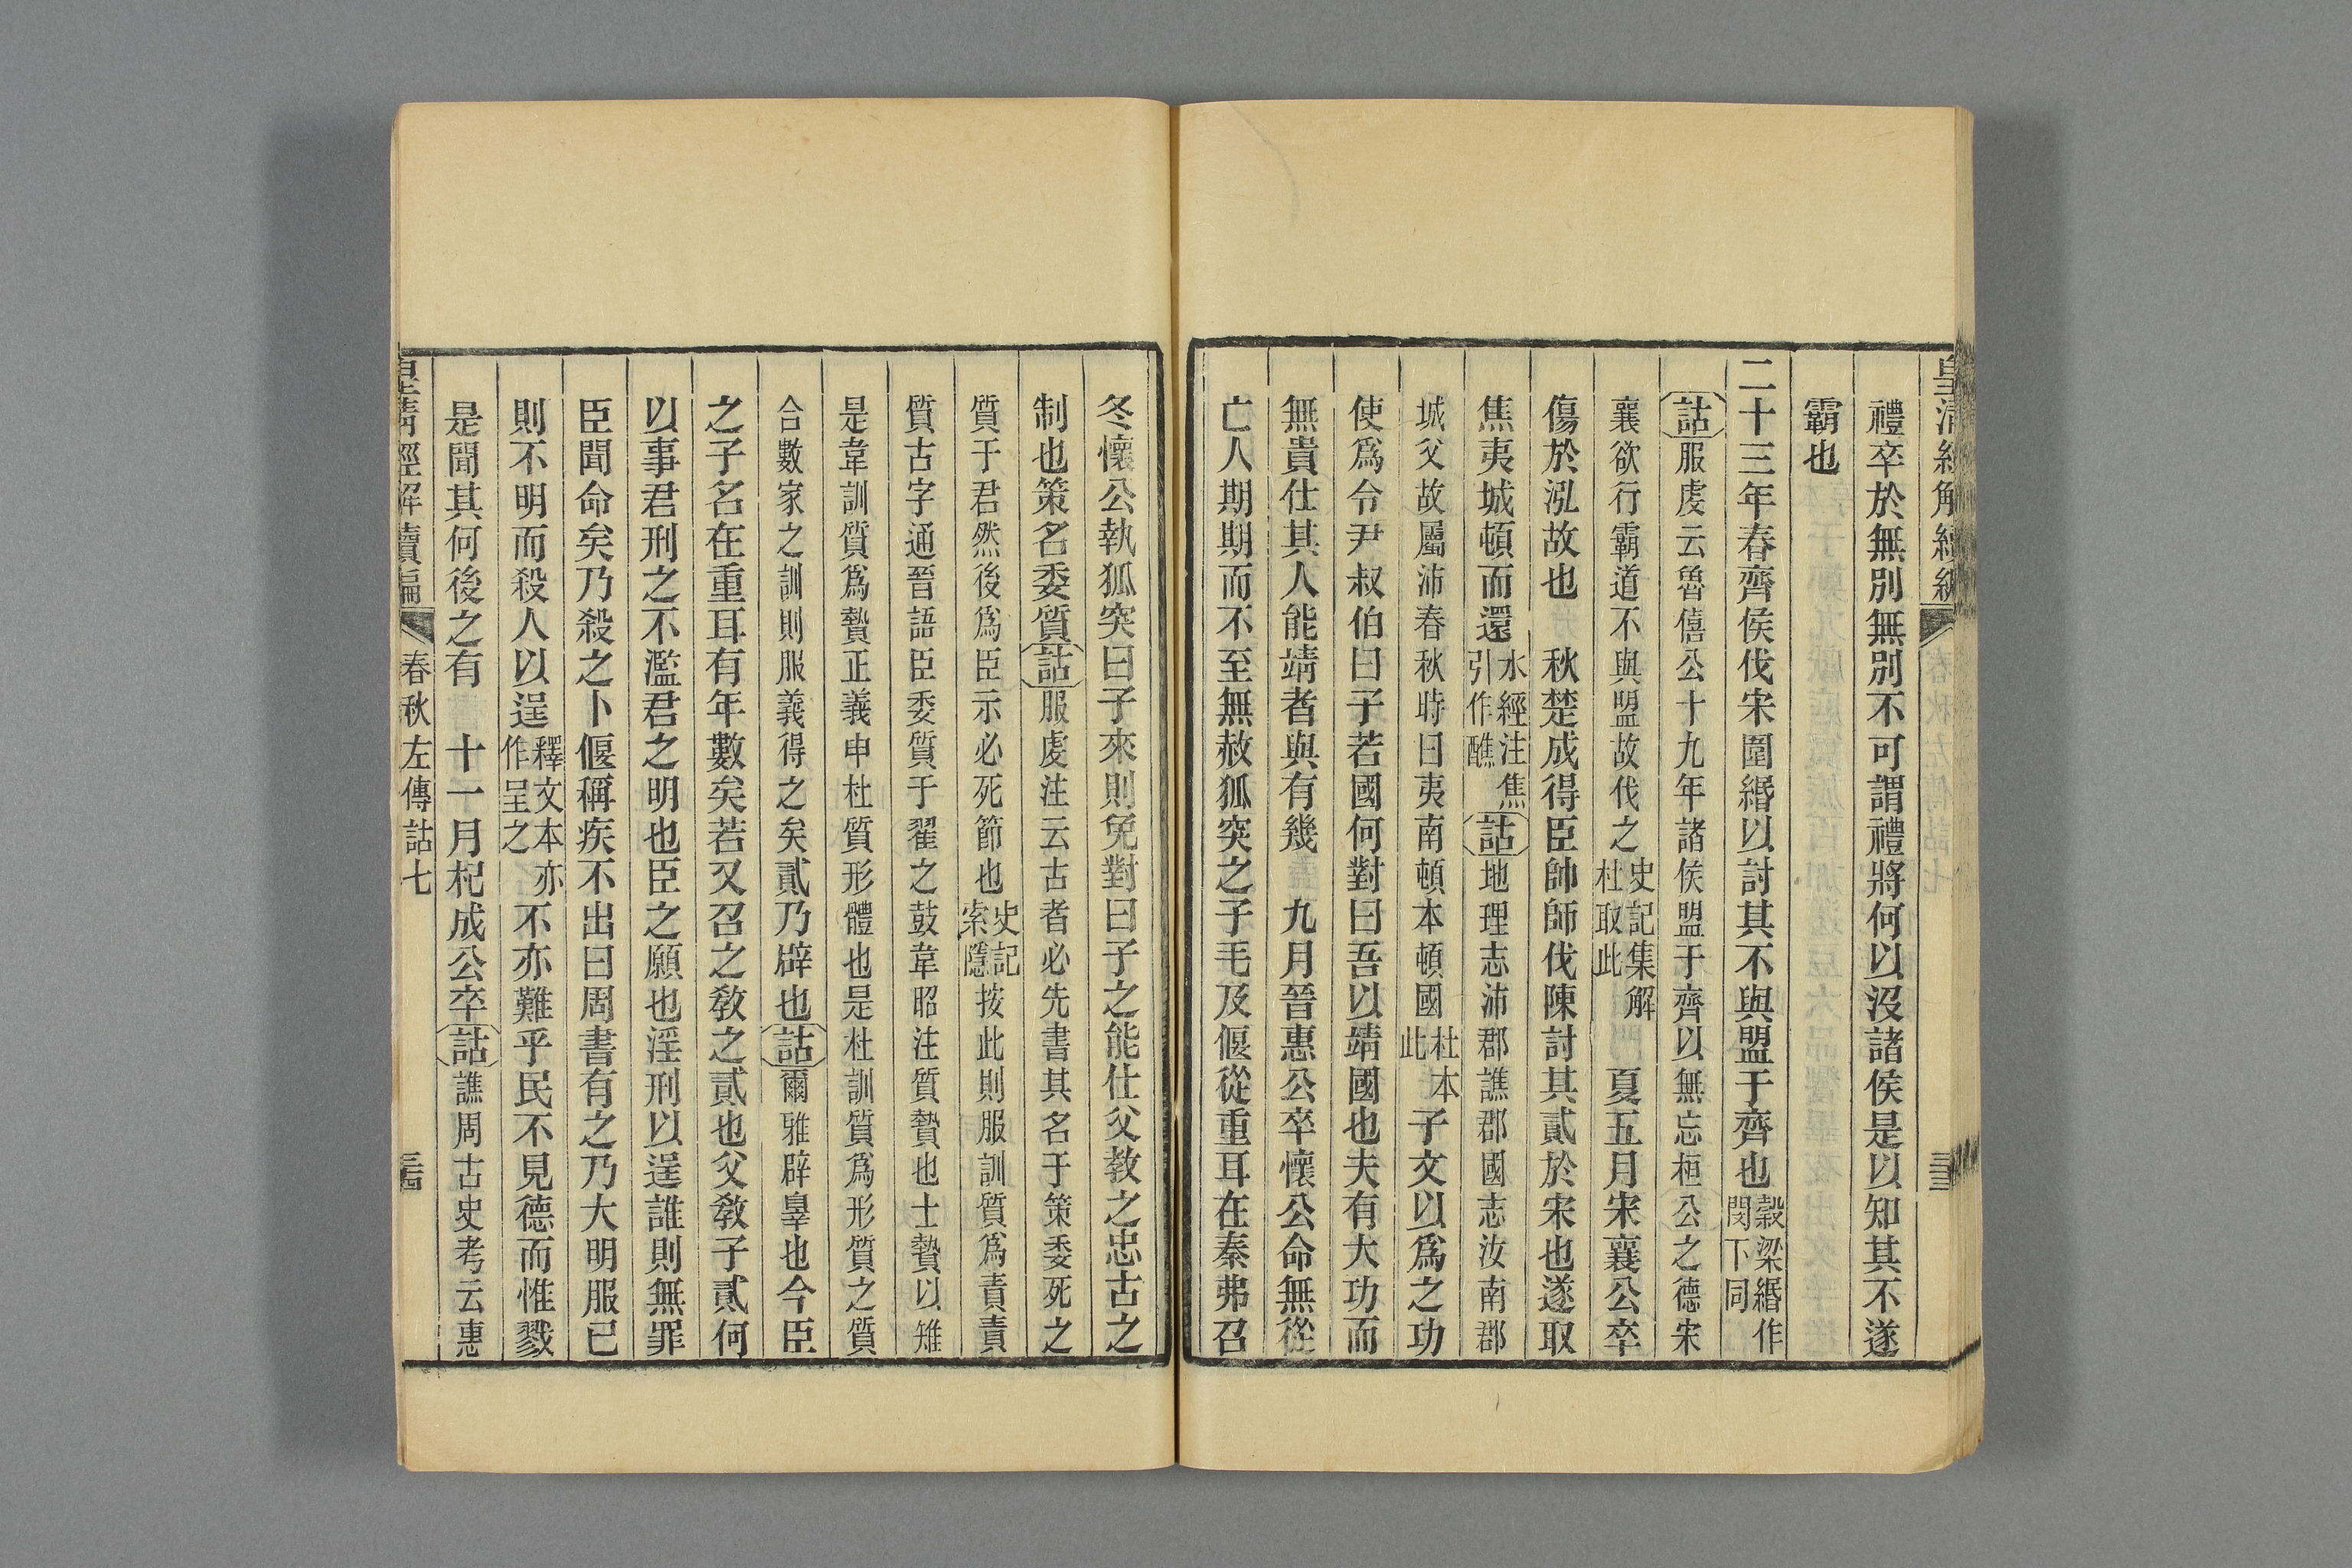 皇清經解續編
禮卒於無別無別不可謂禮將何以沒諸侯是以知其不遂
霸也
二十三年春齊侯伐宋圍緡以討其不與盟于齊也穀梁緡作閔下同
詁服虔云魯僖公十九年諸侯盟于齊以無忘桓公之德宋
襄欲行霸道不與盟故伐之史記集解杜取此 夏五月宋襄公卒
傷於泓故也 秋楚成得臣帥師伐陳討其貳於宋也遂取
焦夷城頓而還水經注焦引作醮詁地理志沛郡譙郡國志汝南郡
城父故屬沛春秋時曰夷南頓本頓國杜本此 子文以爲之功
使爲令尹叔伯曰子若國何對曰吾以靖國也夫有大功而
無貴仕其人能靖者與有幾 九月晉惠公卒懷公命無從
亡人期期而不至無赦狐突之子毛及偃從重耳在秦弗召
冬懷公執狐突曰子來則免對曰子之能仕父教之忠古之
制也策名委質詁服虔注云古者必先書其名于策委死之
質于君然後爲臣示必死節也史記索隱按此則服訓質爲責責
質古字通晉語臣委質于翟之鼓韋昭注質贄也士贄以雉
是韋訓質爲贄正義申杜質形體也是杜訓質爲形質之質
合數家之訓則服義得之矣貳乃辟也詁爾雅辟辠也今臣
之子名在重耳有年數矣若又召之教之貳也父教子貳何
以事君刑之不濫君之明也臣之願也淫刑以逞誰則無罪
臣聞命矣乃殺之卜偃稱疾不出曰周書有之乃大明服已
則不明而殺人以逞釋文本亦作呈之不亦難乎民不見德而惟戮
是聞其何後之有 十一月杞成公卒詁譙周古史考云惠
皇清經解續編 春秋左傳詁七 三四